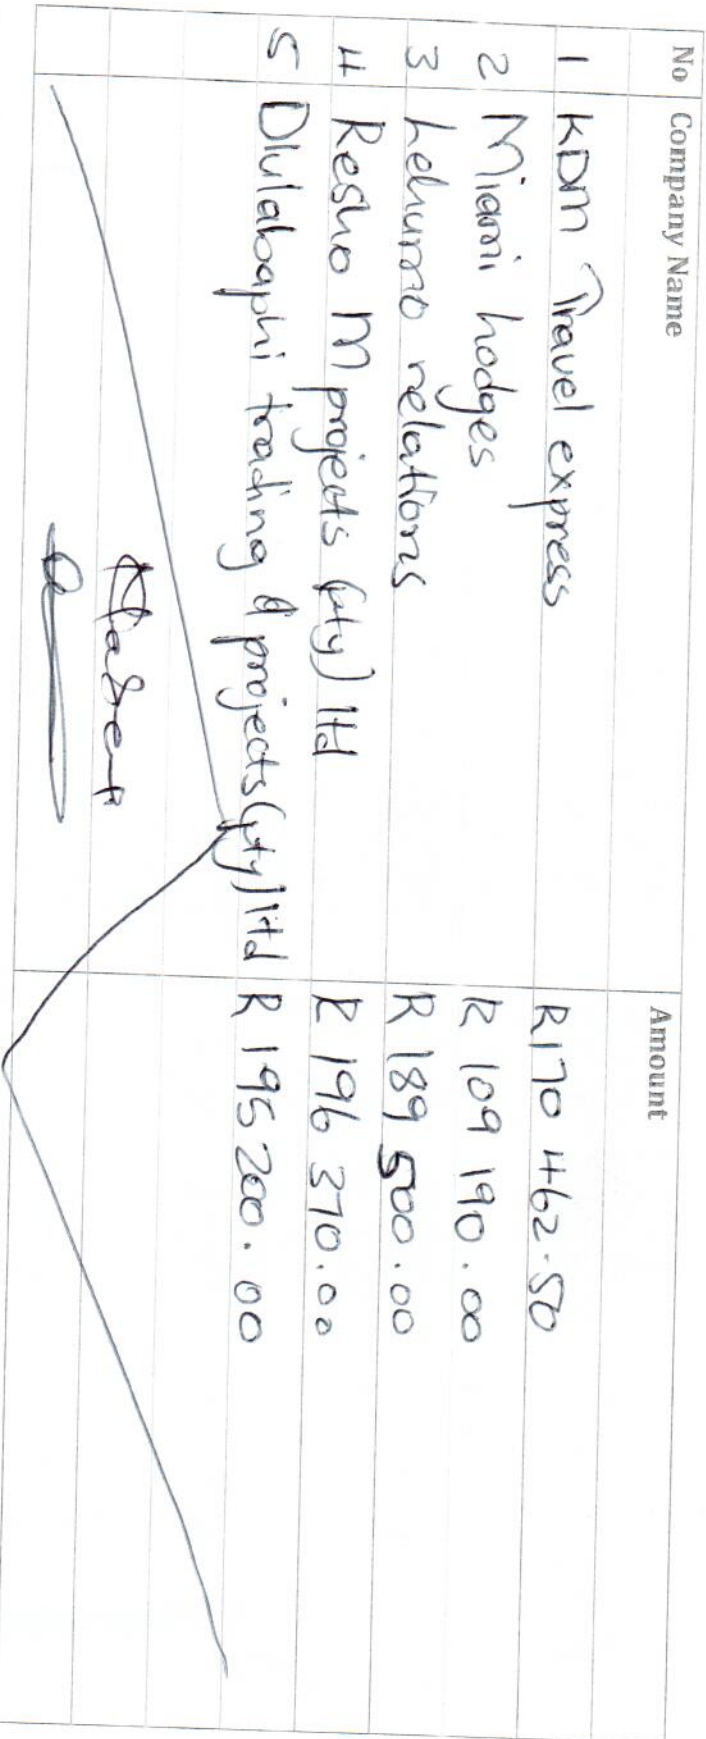 No Company Name Amount
1 KDM Travel express R170 462.50
2 Miami hodges R 109 190.00
3 Lehumo relations R 189 500.00
4 Resho M projects (pty) ltd R 196 370.00
5 Dlulabaphi trading & projects (pty) ltd R 195 200.00